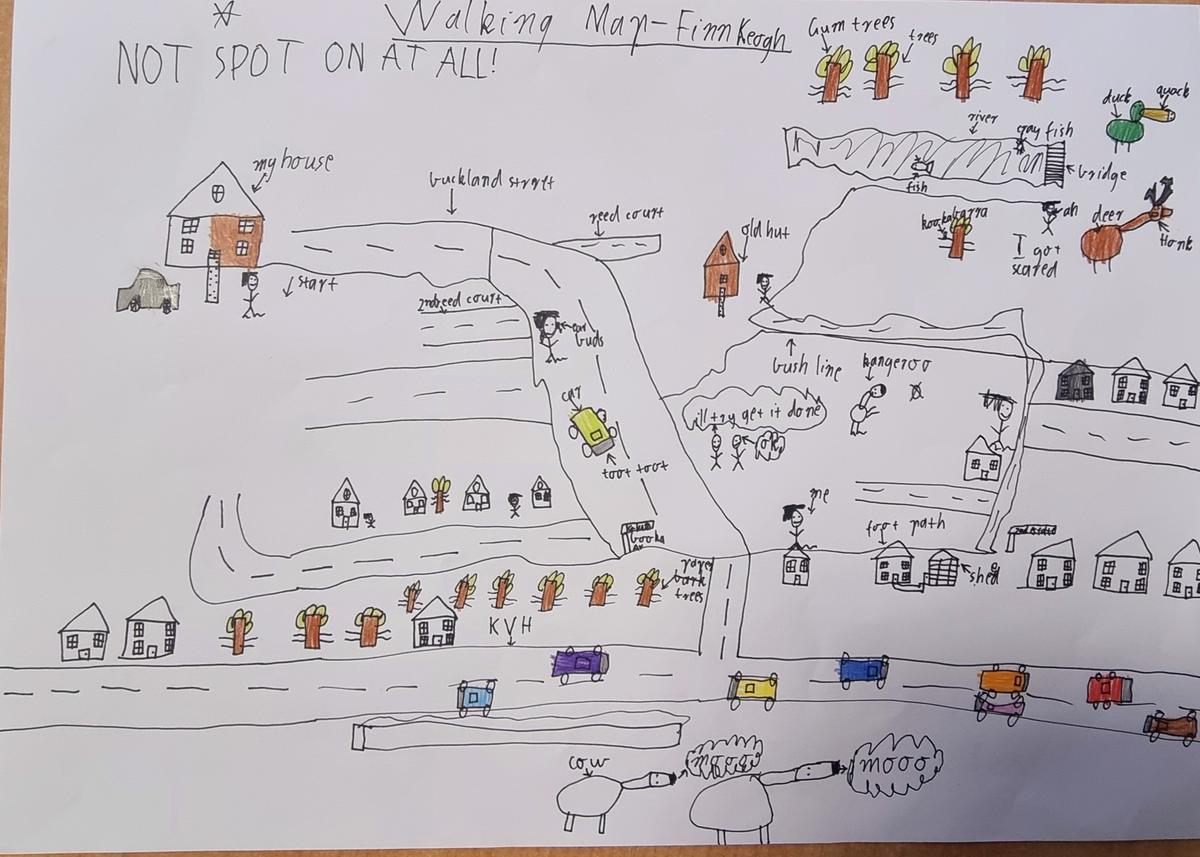 Walking Map-Finn Keogh
NOT SPOT ON AT ALL!
Gum trees
trees
duck
quack
river
cray fish
bridge
fish
my house
buckland street
reed court
old hut
kookabarra
ah
I got
scared
deer
Honk
start
2nd reed court
ear
buds
bush line
kangeroo
car
ill try get it done
OK
toot toot
me
foot path
shed
paper
bark
trees
KVH
cow
mooo
mooo